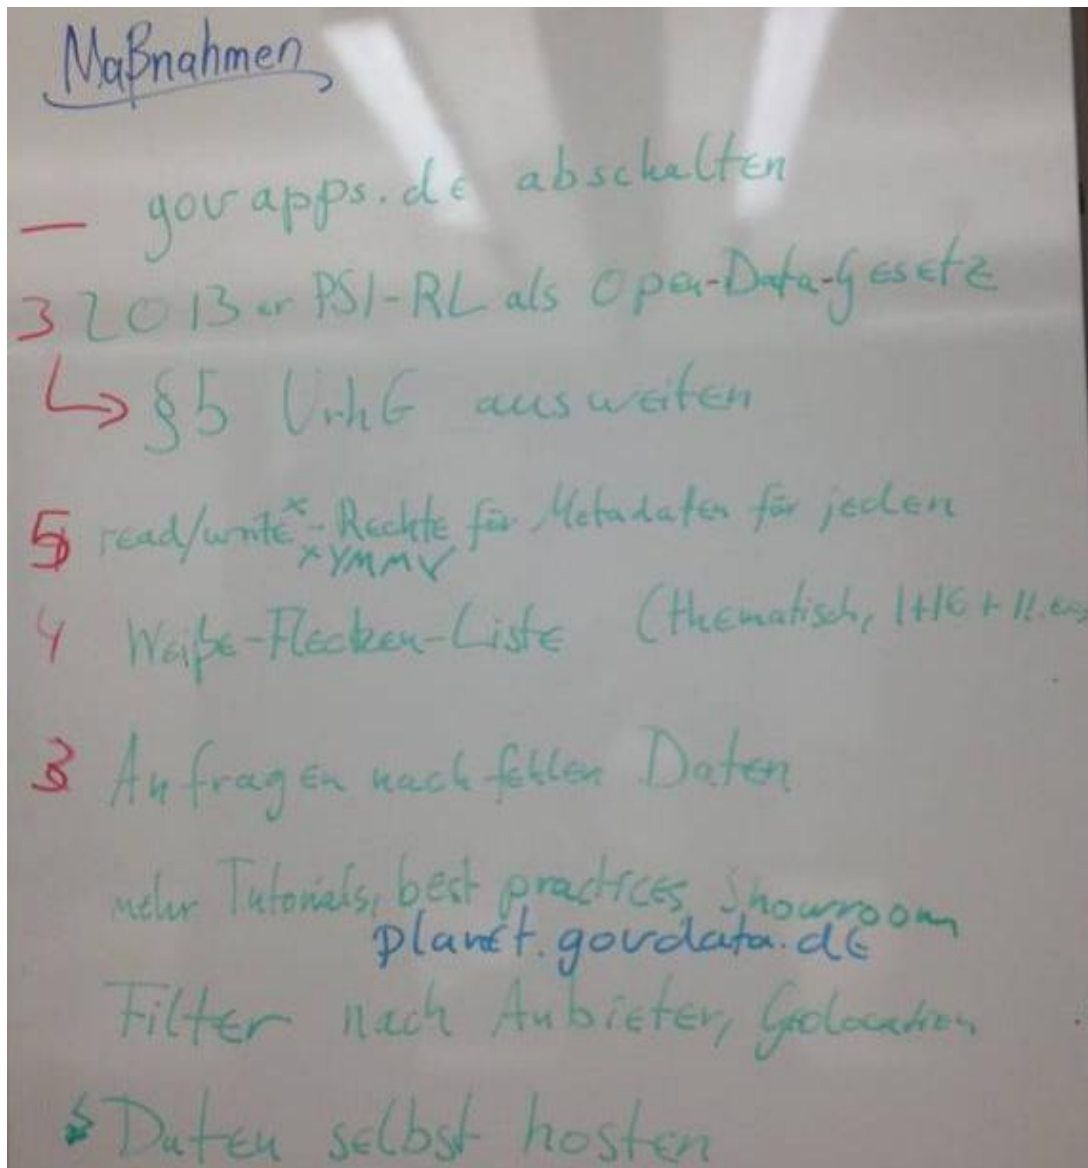 Maßnahmen
— govapps.de abschalten
3 2013er PSI-RL als Open-Data-Gesetz
↳ §5 UrhG ausweiten
5 read/write*-Rechte für Metadaten für jeden
*YMMV
4 Weiße-Flecken-Liste (thematisch,
3 Anfragen nach fehlen Daten
mehr Tutorials, best practices, Showroom
planet.govdata.de
Filter nach Anbieter, Geolocation
Daten selbst hosten